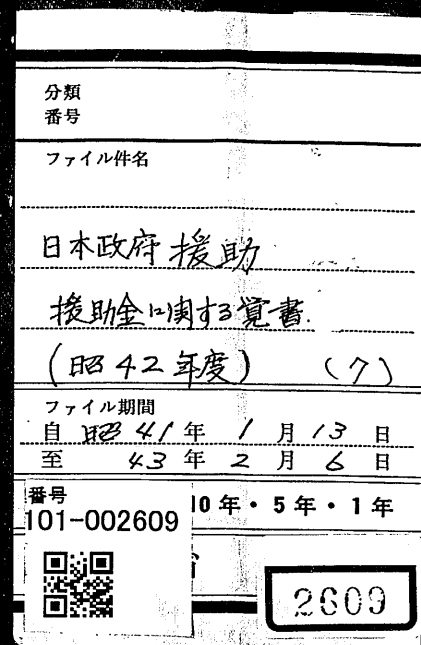 分類
番号
ファイル件名
日本政府援助
援助金に関する覚書.
(昭42年度) (7)
ファイル期間
自 昭 41 年 1 月 13 日
至 43 年 2 月 6 日
10年・5年・1年
番号
101-002609
2609